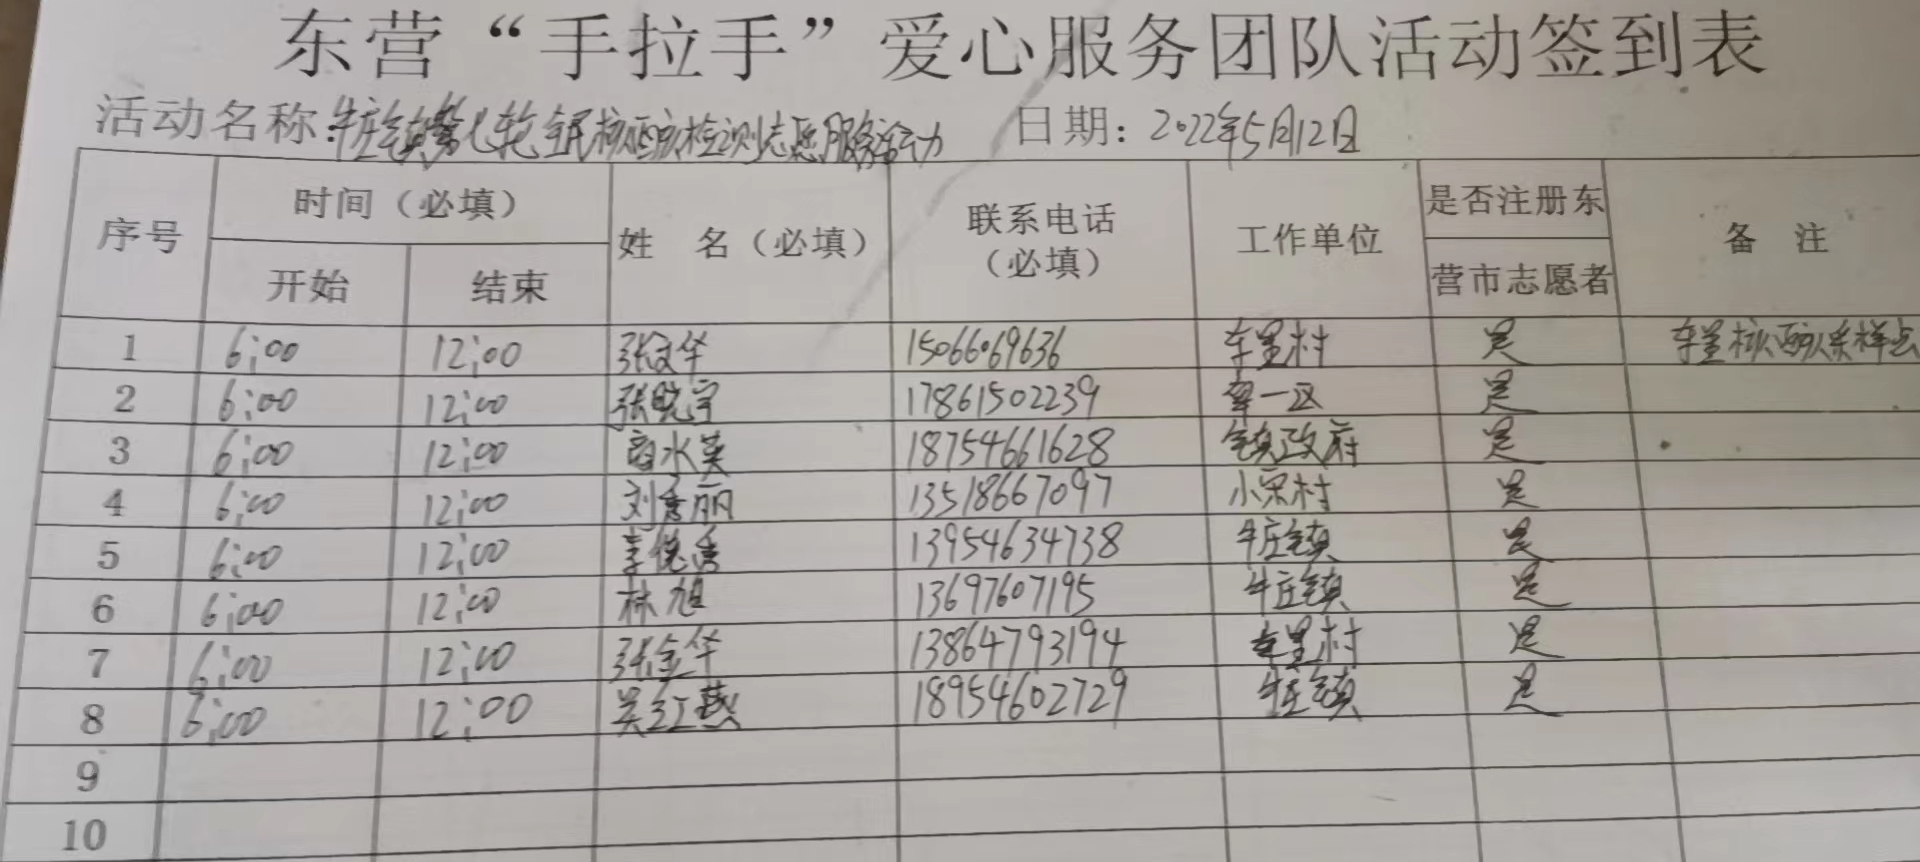 东营“手拉手”爱心服务团队活动签到表
活动名称:牛庄镇第七轮全民核酸检测志愿服务活动 日期:2022年5月12日
序号 时间(必填) 姓 名(必填) 联系电话(必填) 工作单位 是否注册东营市志愿者 备 注
开始 结束
1 6:00 12:00 张文华 15066069636 车里村 是 车里核酸采样点
2 6:00 12:00 张晓宇 17861502239 一区 是
3 6:00 12:00 水英 18754661628 镇政府 是
4 6:00 12:00 刘秀丽 13518667097 小宋村 是
5 6:00 12:00 13954634738 牛庄镇 是
6 6:00 12:00 林旭 13697607195 牛庄镇 是
7 6:00 12:00 张金华 13864793194 车里村 是
8 6:00 12:00 吴红燕 18954602729 牛庄镇 是
9
10